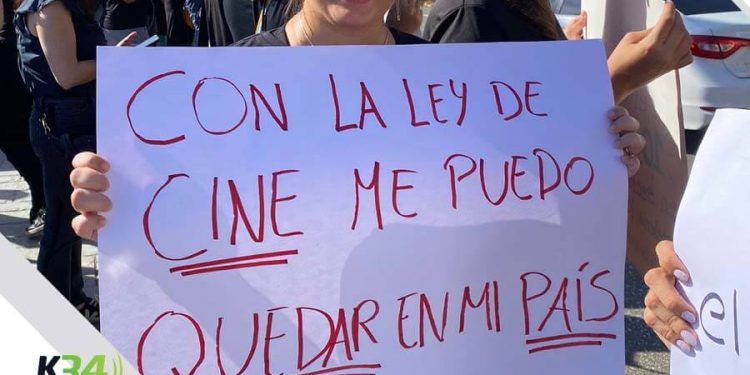 CON LA LEY DE
CINE ME PUEDO
QUEDAR EN MI PAÍS
el
K34